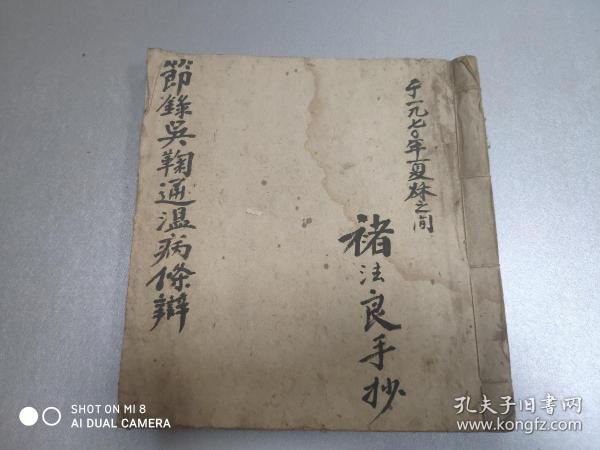 于一九七〇年夏秌之间
褚法良手抄
節錄吳鞠通溫病條辯
SHOT ON MI 8
AI DUAL CAMERA
孔夫子旧书网
www.kongfz.com